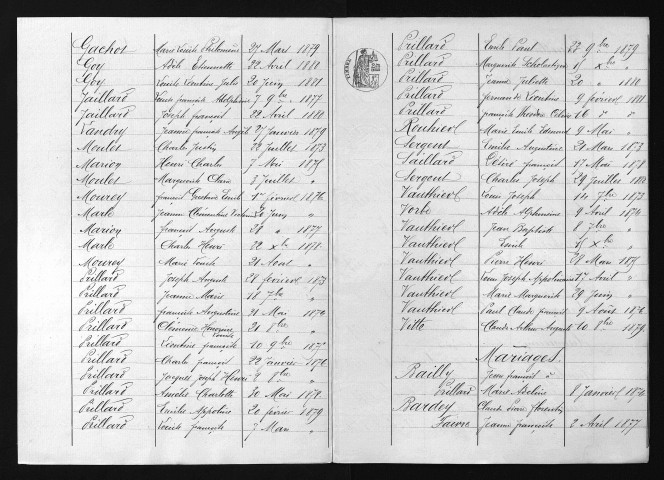 Gachot Marie Louise Philomène 27 Mars 1879
Goy Adèle Etiennette 22 Avril 1880
Goy Louis Léontine Julie 20 Juin 1881
Jaillard Louis françois Adolphine 7 9bre 1877
Jaillard Joseph françois 22 Avril 1880
Vandry Jeanne françoise Angèle 27 Janvier 1879
Moutet Charles Justin 22 Juillet 1873
Marion Henri Charles 7 Mai 1875
Moutet Marguerite Claire 3 Juillet "
Mourey françois Gustave Emile 17 février 1876
Marle Jeanne Clémentine 20 Juin "
Marion françois Auguste 28 " 1877
Marle Charles Henri 22 Xbre 1878
Mourey Marie Louise 21 Août "
Prillard Joseph August 28 février 1873
Prillard Jeanne Marie 18 7bre "
Prillard françoise Augustine 21 Mai 1874
Prillard Clémence 21 8bre "
Prillard Léontine françoise 10 9bre 1875
Prillard Charles françois 22 Janvier 1876
Prillard Jacques Joseph Henri 8bre "
Prillard Amélie Charlotte 30 Mai 1878
Prillard Emilie Appoline 20 février 1879
Prillard Louise françoise 7 Mars "
Prillard Emile Paul 27 9bre 1879
Prillard Marguerite Scholastique Xbre "
Prillard Jeanne Juliette 20 " 1880
Prillard fernande Léontine 9 février 1881
Prillard françois Théodore 16 " "
Routhieol Marie Emile Edmond 9 Mai "
Sergent Emilie Augustine 21 Mars 1873
Saillard Désiré françois 17 Mai 1878
Sergent Charles Joseph 29 Juillet 1881
Vauthierol Louis Joseph 14 7bre 1873
Verbe Adèle Alphonsine 9 Avril 1874
Vauthierol Jean Baptiste 8 7bre "
Vauthierol Louise Xbre "
Vauthierol Pierre Henri 28 Mars 1875
Vauthierol Louis Joseph Appolinaire 17 Avril "
Vauthierol Marie Marguerite 29 Juin "
Vauthierol Paul Claude françois 9 Août 1876
Vette Claude Arthur Auguste 10 8bre 1879
Mariages.
Bailly Jean françois à
Prillard Marie Adeline 8 Janvier 1876
Bardey Claude
Faivre Jeanne françoise 2 Avril 1877